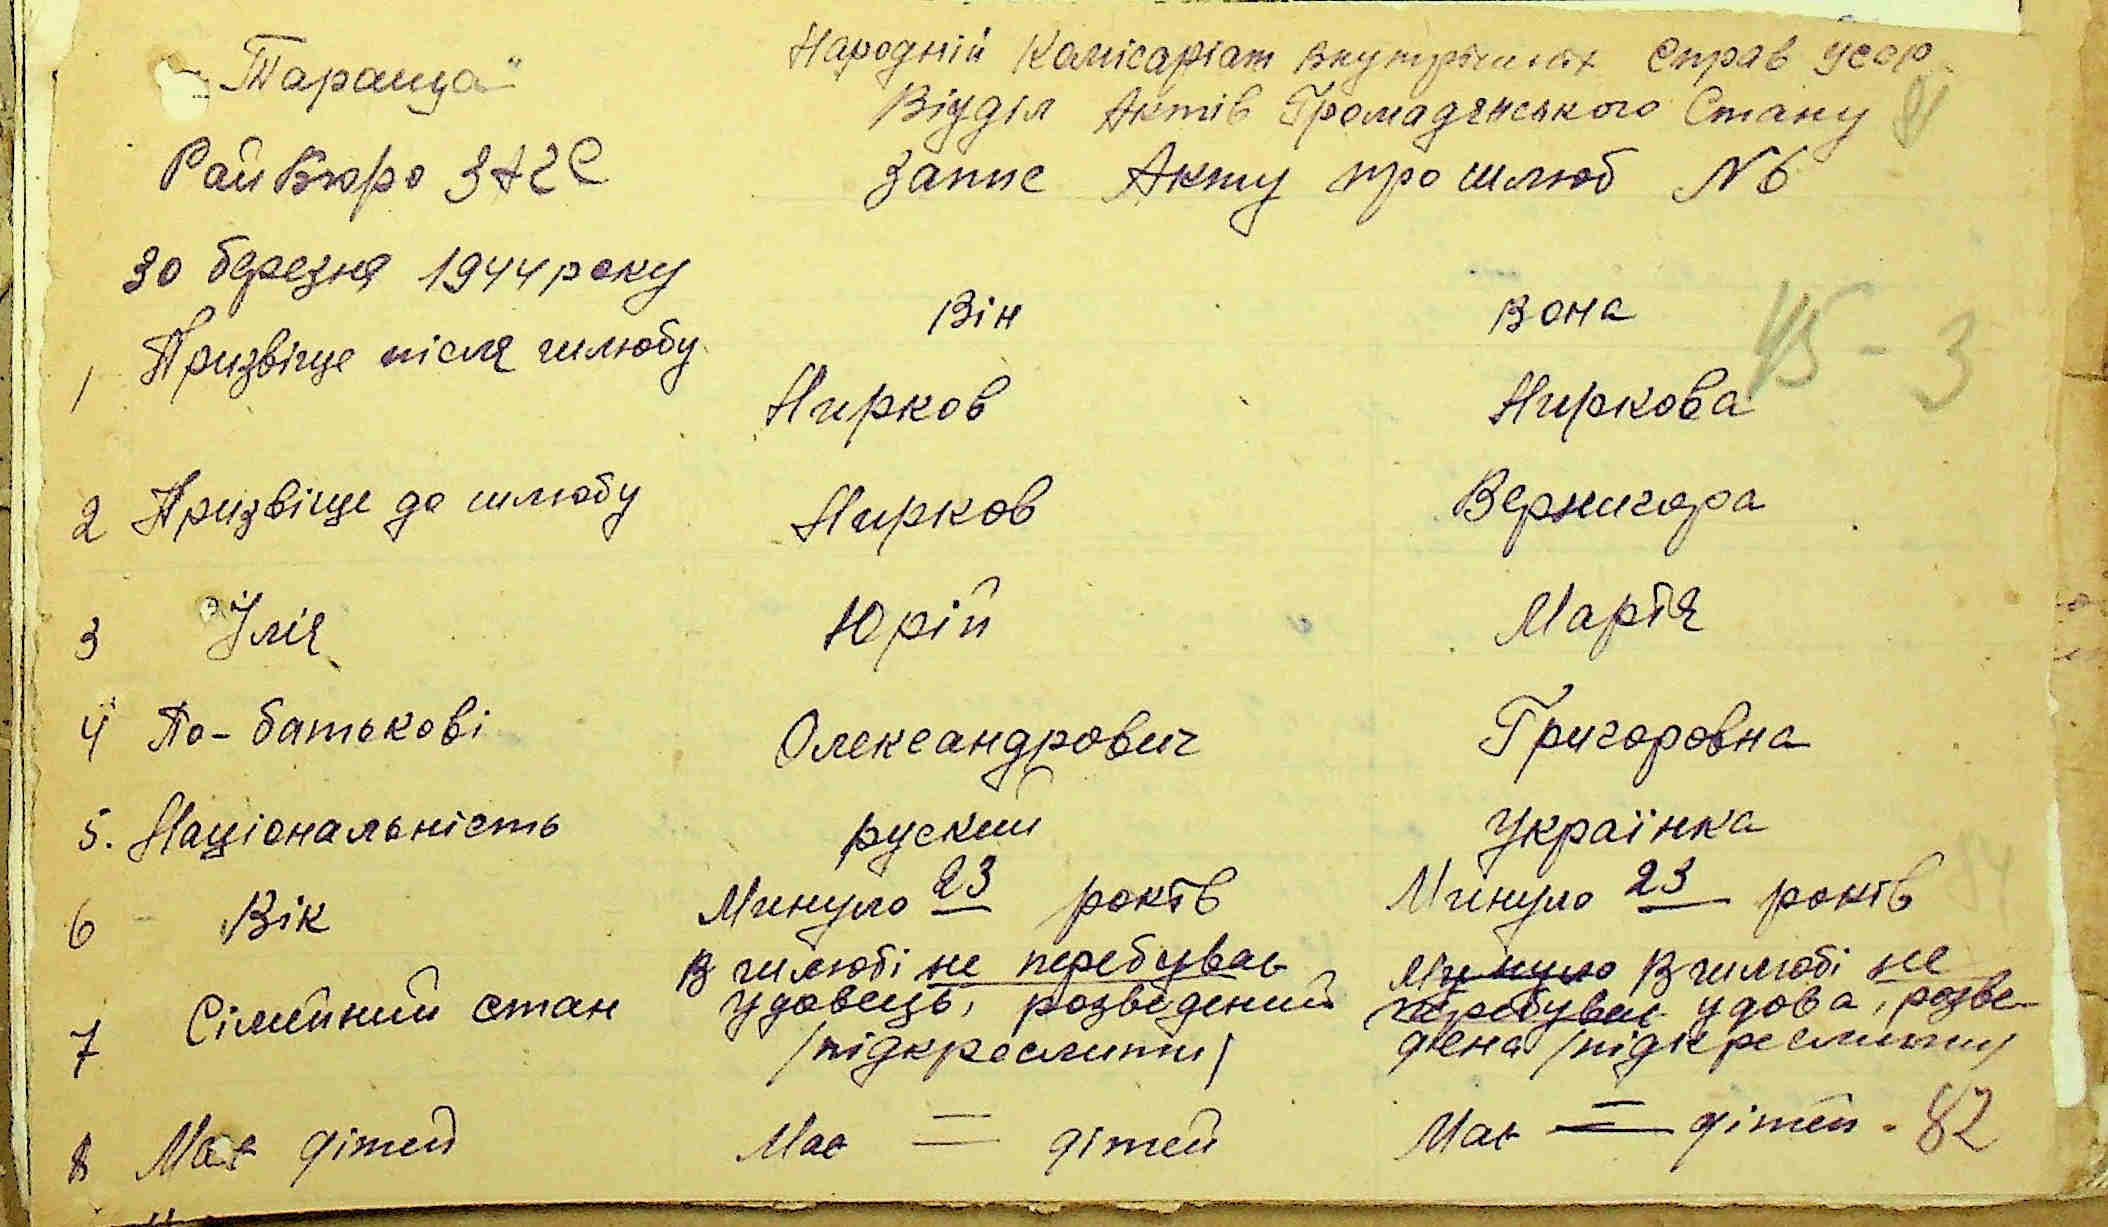 „Тараща"
Народній Комісаріат Внутрішніх Справ УССР
Відділ Актів Громадянського Стану
81
РайБюро ЗАГС
Запис Акту про шлюб N 6
30 березня 1944 року
Він Вона
45 - 3
1 Призвіще після шлюбу
Нирков Ниркова
2 Призвіще до шлюбу Нирков Вернигора
3 Імія Юрій Марія
4 По-батькові Олександрович Григоровна
5. Національність руский Українка
6 Вік Минуло 23 років Минуло 23 років
7 Сімейний стан
В шлюбі не перебував
удовець, розведений
/підкреслити/
Минуло В шлюбі не
перебувал удова, розве-
дена /підкреслити/
8 Має дітей Має = дітей Має = дітей.
82